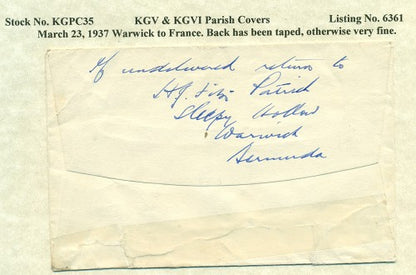 Stock No. KGPC35 KGV & KGVI Parish Covers Listing No. 6361
March 23, 1937 Warwick to France. Back has been taped, otherwise very fine.
If undelivered return to
H.J. Fitz Patrick
Sleepy Hollow
Warwick
Bermuda